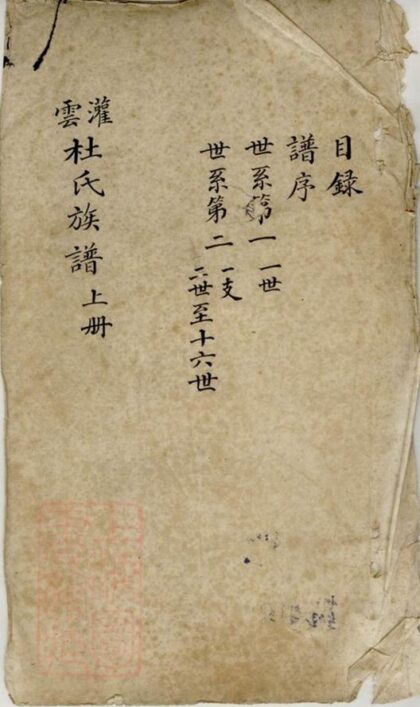 目録
譜序
世系第一 一世
世系第二 一支
二世至十六世
灌雲杜氏族譜上册